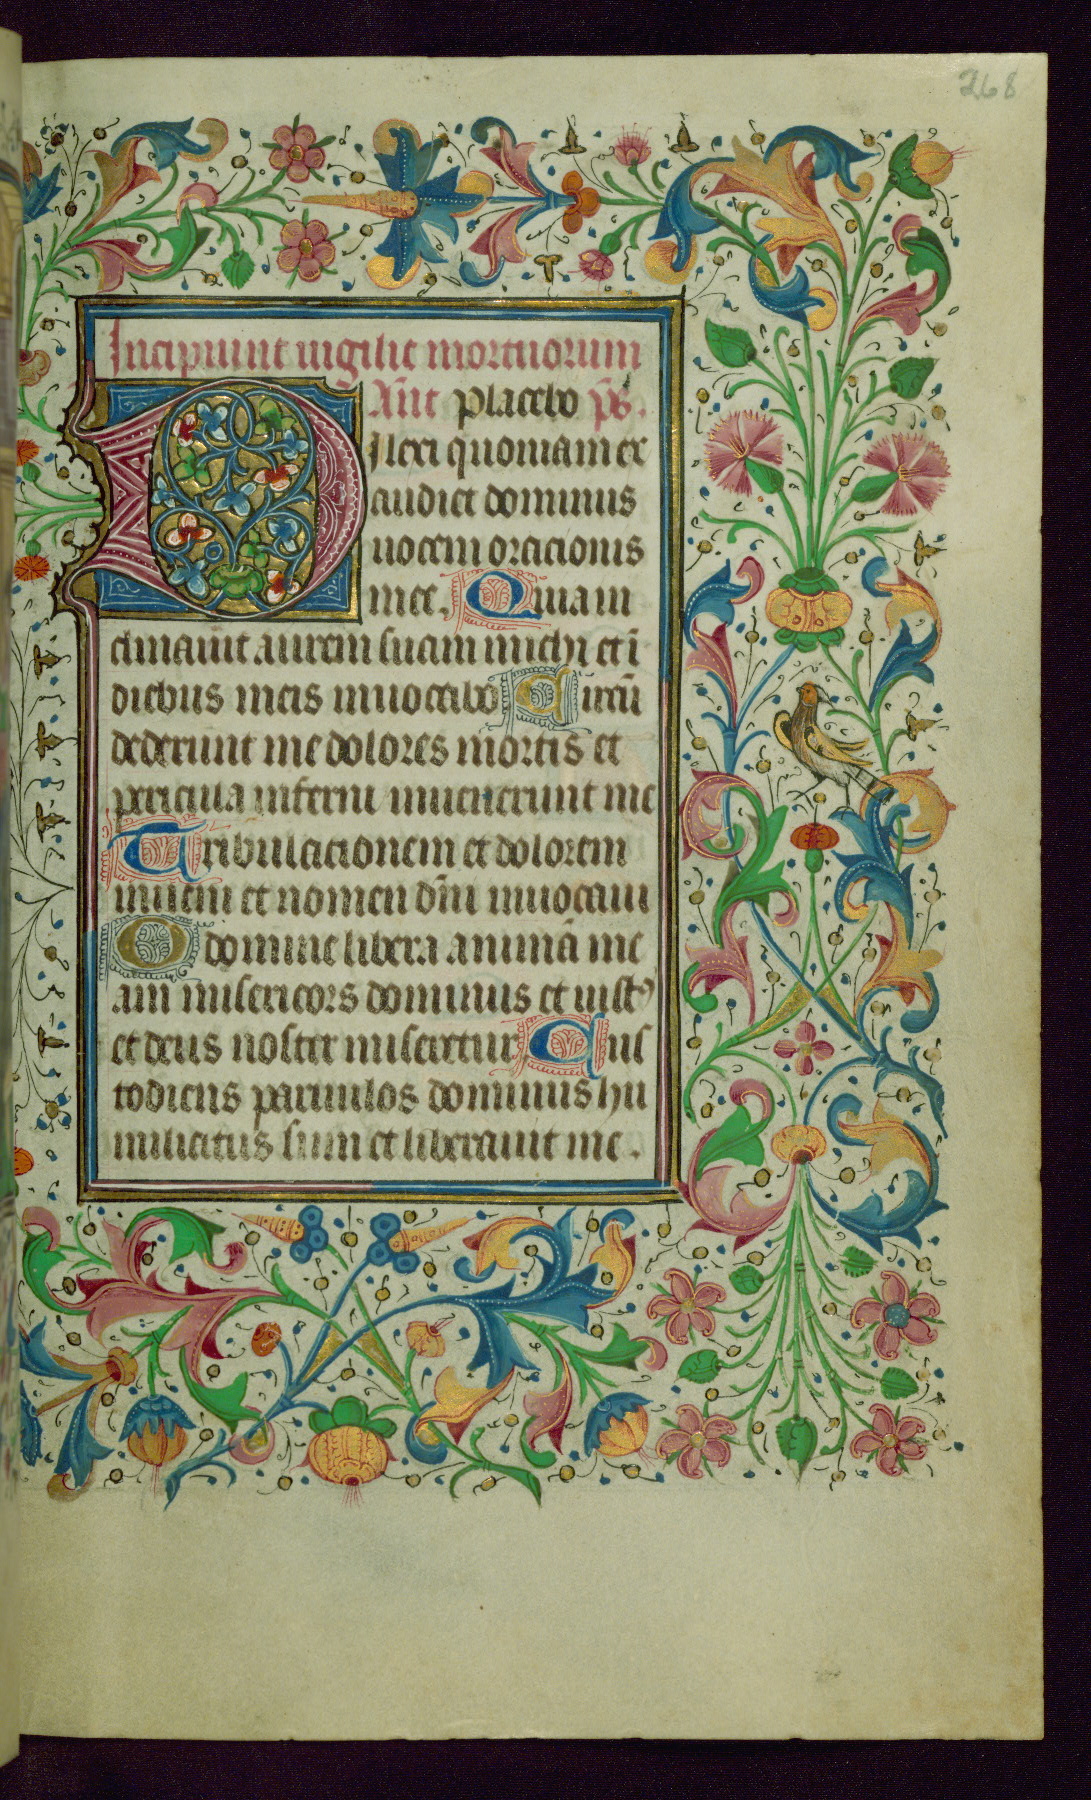 268
Incipiunt uigilie mortuorum
Añt placebo p̄s.
Dilexi quoniam ex
audiet dominus
uocem oracionis
mee. Quia in
clinauit aurem suam michi et ī
diebus meis inuocabo Circū
dederunt me dolores mortis et
pericula inferni inuenerunt me
Tribulacionem et dolorem
inueni et nomen dn̄i inuocaui
O domine libera animā me
am misericors dominus et iustꝰ
et deus noster miseretur Cus
todiens paruulos dominus hu
miliatus sum et liberauit me.